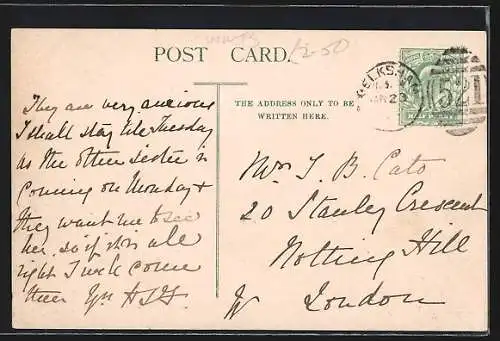 POST CARD.
12-50
MELKSHAM
521
HALFPENNY
THE ADDRESS ONLY TO BE
WRITTEN HERE.
They are very anxious
I shall stay till Tuesday
as the other sister is
coming on Monday &
they want me to see
her. so if it is all
right I will come
then Yrs
Mrs T. B. Cato
20 Stanley Crescent
Notting Hill
W London